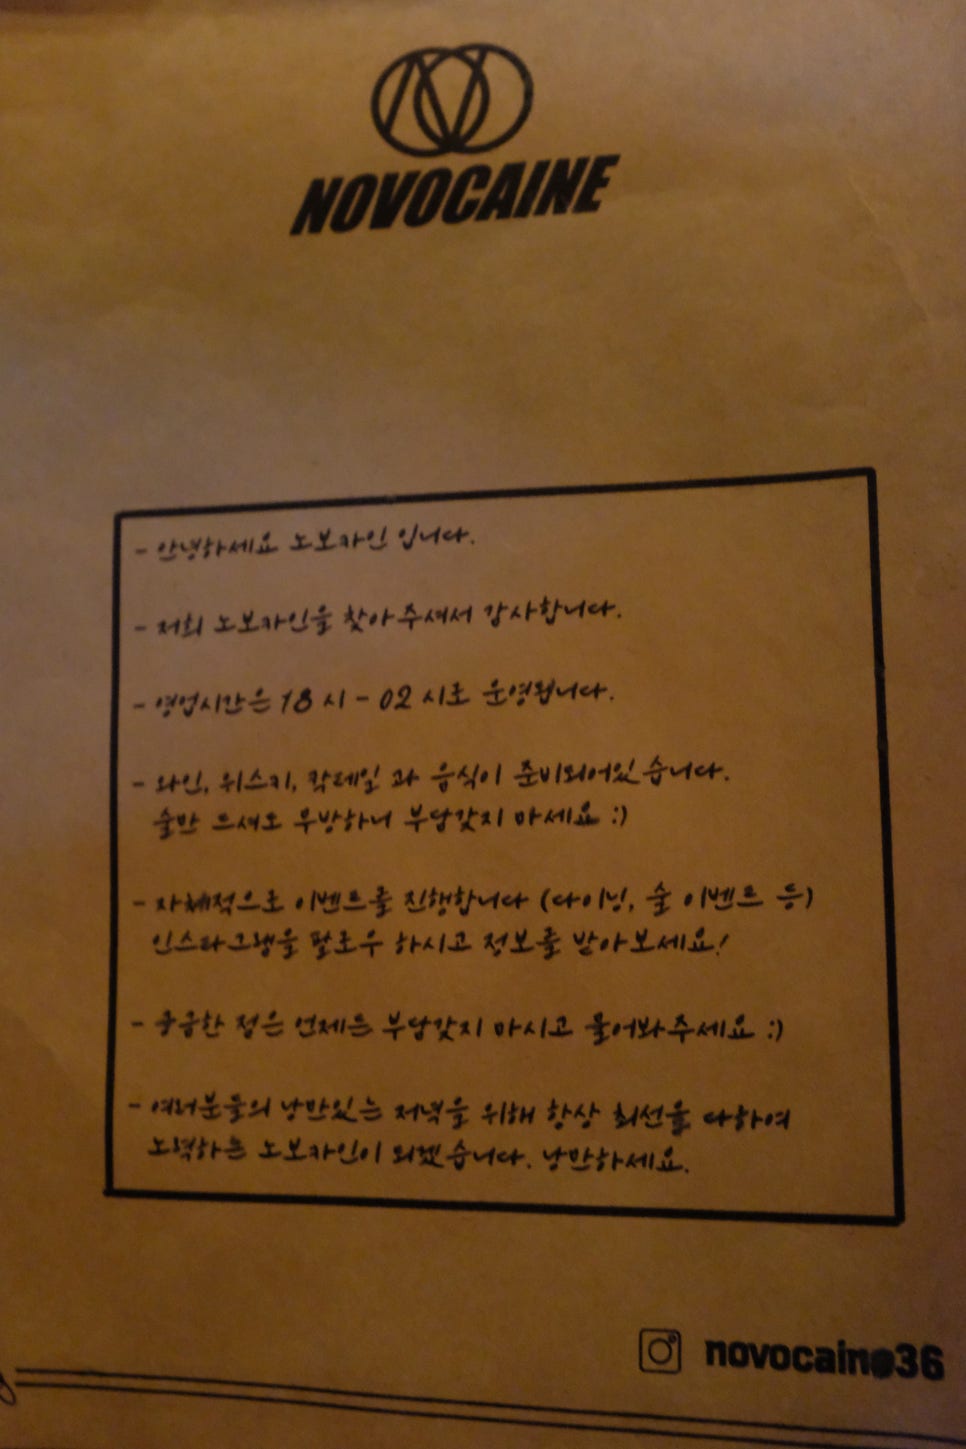 NOVOCAINE
- 안녕하세요 노보카인 입니다.
- 저희 노보카인을 찾아주셔서 감사합니다.
- 영업시간은 18 시 - 02 시로 운영됩니다.
- 와인, 위스키, 칵테일 과 음식이 준비되어있습니다.
술만 드셔도 무방하니 부담갖지 마세요 :)
- 자체적으로 이벤트를 진행합니다 (다이닝, 술 이벤트 등)
인스타그램을 팔로우 하시고 정보를 받아보세요!
- 궁금한 점은 언제든 부담갖지 마시고 물어봐주세요 :)
- 여러분들의 낭만있는 저녁을 위해 항상 최선을 다하여
노력하는 노보카인이 되겠습니다. 낭만하세요.
novocaine36